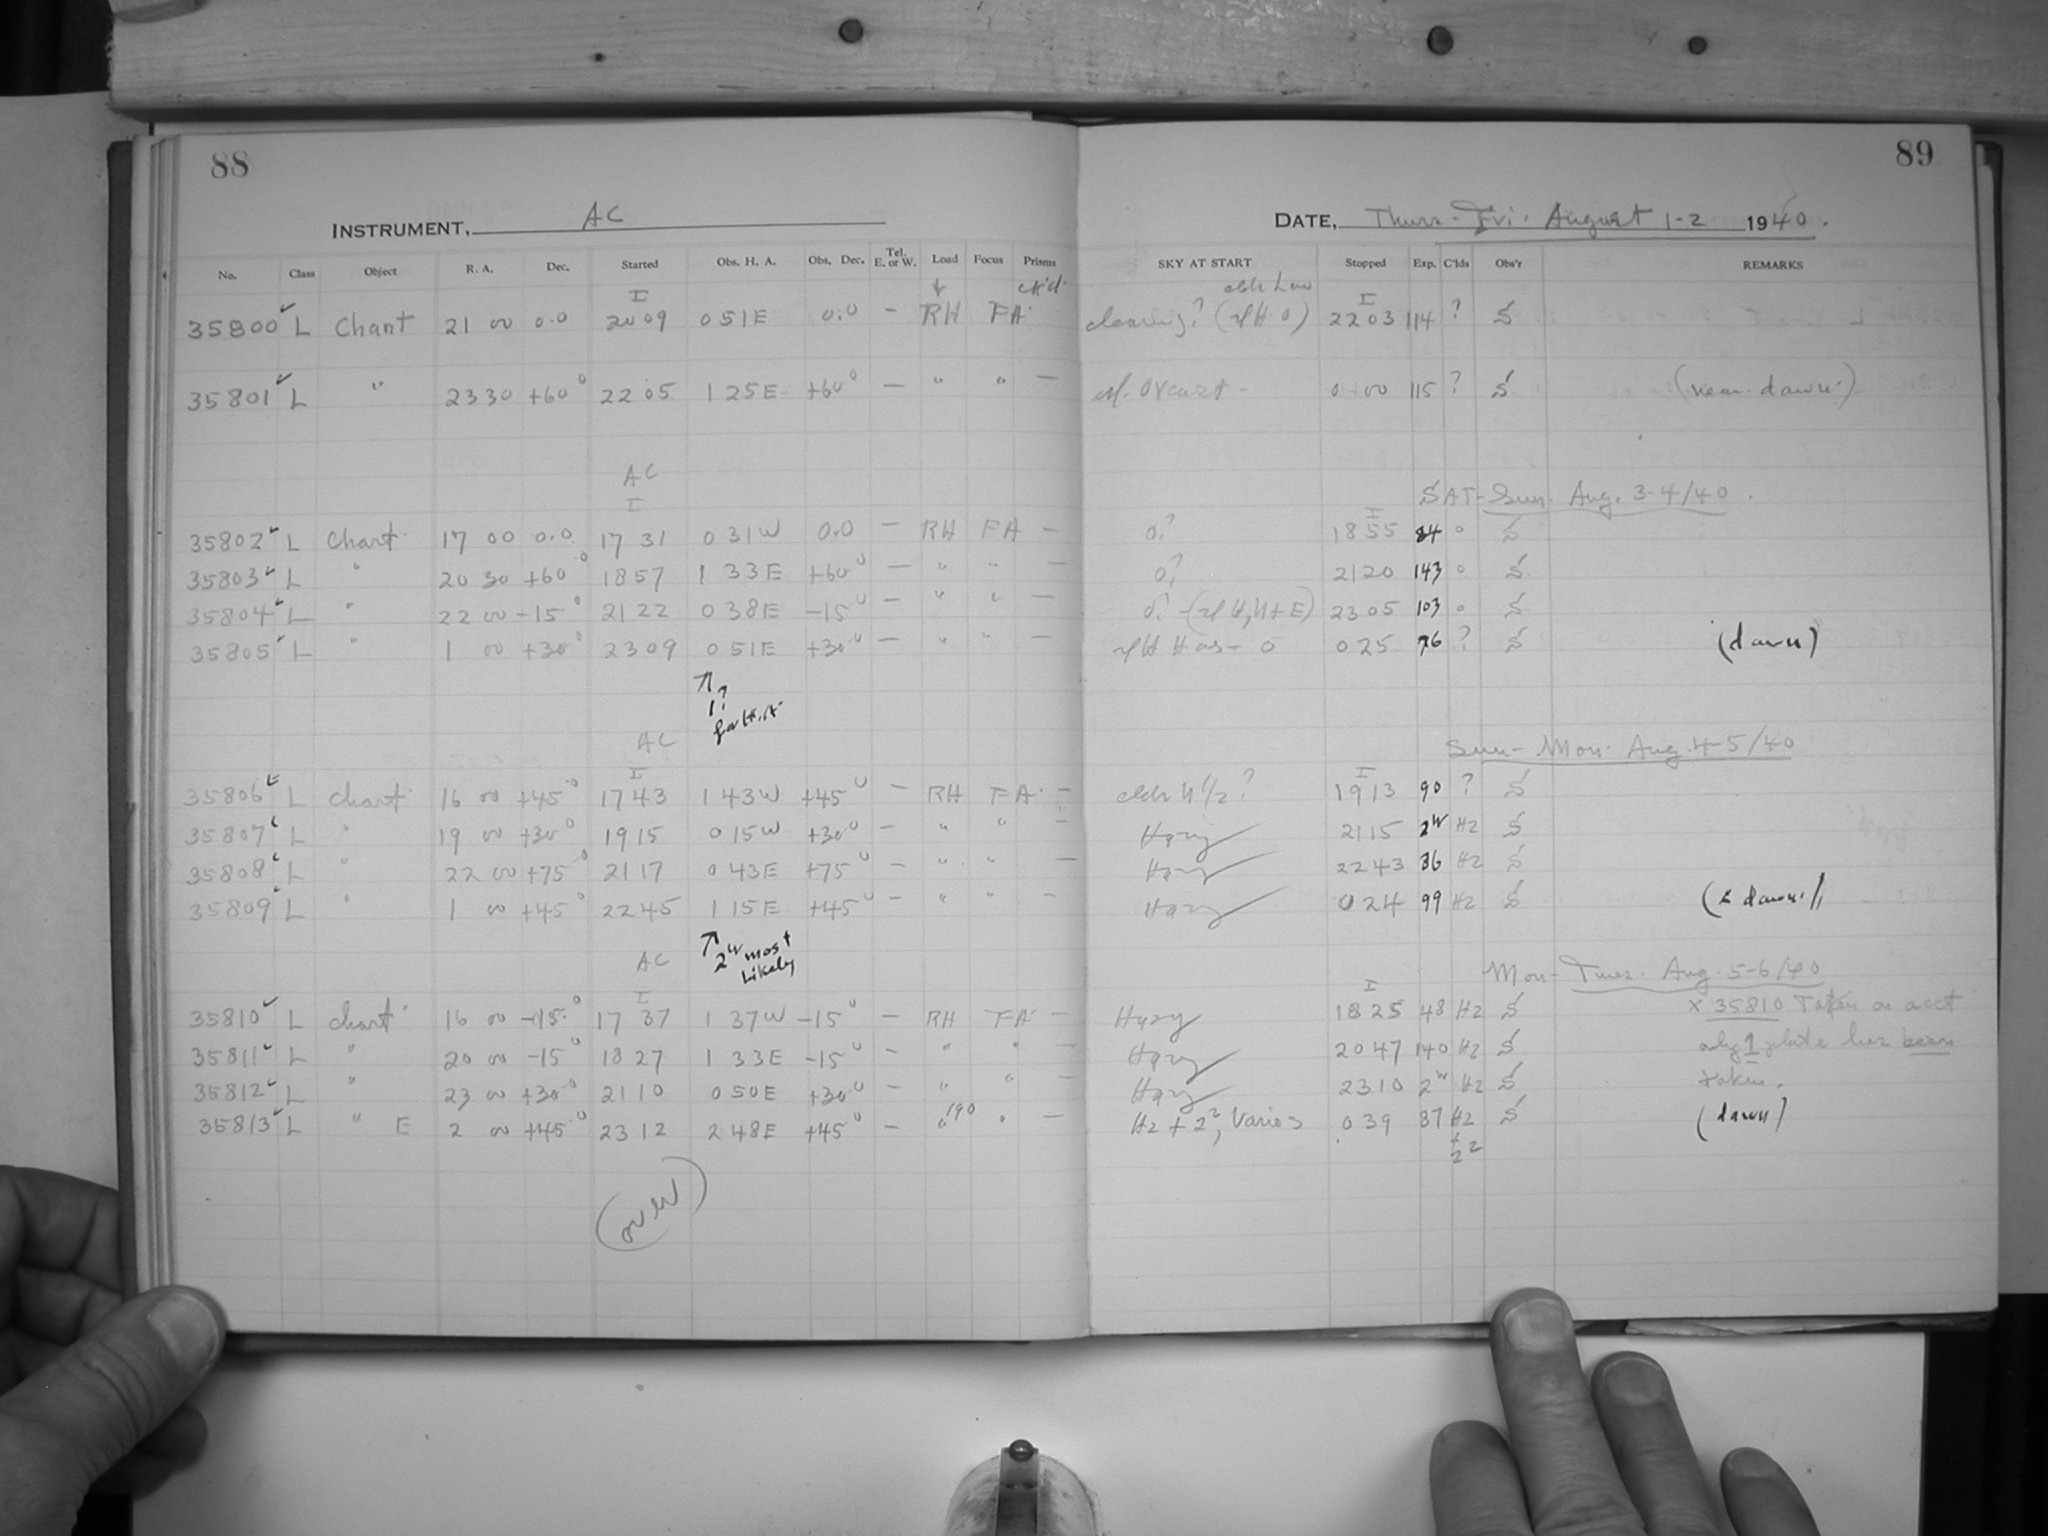 88
89
INSTRUMENT, AC
DATE, Thurs - Fri. August 1-2 1940.
No. Class Object R. A. Dec. Started Obs. H. A. Obs. Dec. Tel. E. or W. Load Focus Prisms SKY AT START Stopped Exp. C'lds Obs'r REMARKS
I I
35800 L Chart 21 00 0.0 2009 0 51E 0.0 — RH FA 2203 114 ? S
35801 L " 23 30 +60° 2205 1 25E +60° — " " — 0 00 115 ? S (near dawn)
AC
I SAT-Sun. Aug. 3-4/40.
35802 L Chart 17 00 0.0 17 31 0 31W 0.0 — RH FA — 0? 1855 84 0 S
35803 L " 20 30 +60° 1857 1 33E +60° — " " — 0? 2120 143 0 S
35804 L " 22 00 -15° 2122 0 38E -15° — " " — 2305 103 0 S
35805 L " 1 00 +30° 2309 0 51E +30° — " " — 0 25 76 ? S (dawn)
↑ 1? for H.A.
AC Sun- Mon. Aug. 4-5/40
I I
35806 L Chart 16 00 +45° 1743 1 43W +45° — RH FA — 1913 90 ? S
35807 L " 19 00 +30° 1915 0 15W +30° — " " — Hazy 2115 2H HZ S
35808 L " 22 00 +75° 2117 0 43E +75° — " " — Hazy 2243 86 HZ S
35809 L " 1 00 +45° 2245 1 15E +45° — " " — Hazy 0 24 99 HZ S
↑ 2H most Likely
AC Mon- Tues. Aug. 5-6/40
I I
35810 L Chart 16 00 -15° 17 37 1 37W -15° — RH FA — Hazy 1825 48 HZ S x 35810 Taken on acct
35811 L " 20 00 -15° 1827 1 33E -15° — " " — Hazy 2047 140 HZ S only 1 plate has been
35812 L " 23 00 +30° 2110 0 50E +30° — " " — Hazy 2310 2H HZ S taken.
35813 L " E 2 00 +45° 2312 2 48E +45° — " 190 " — HZ + 2², Varies 0 39 87 HZ + 2² S (dawn)
(over)